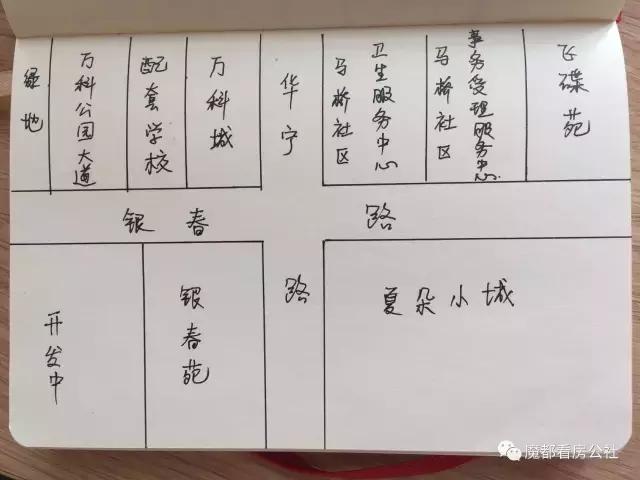 绿地
万科公园大道
配套学校
万科城
华宁
马桥社区
卫生服务中心
马桥社区
事务受理服务中心
飞碟苑
银春路
开发中
银春苑
路
夏朵小城
魔都看房公社